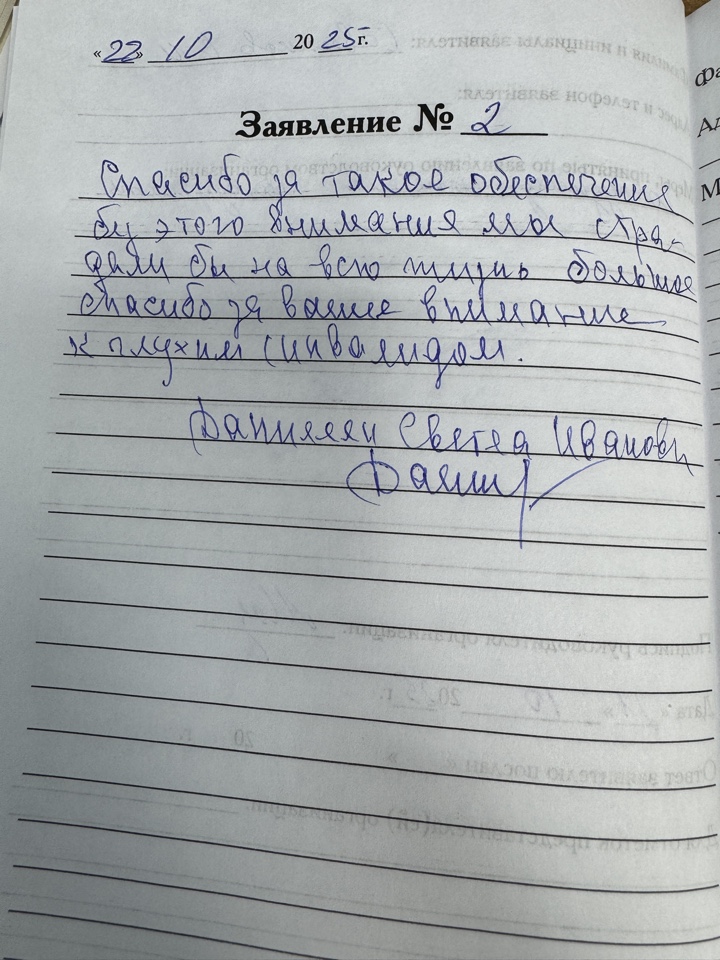 «22» 10 2025 г.
Заявление № 2
Спасибо за такое обеспечение
без этого внимания мы стра-
дали бы на всю жизнь большое
спасибо за ваше внимание
к глухим (инвалидом.
Светла Иванови